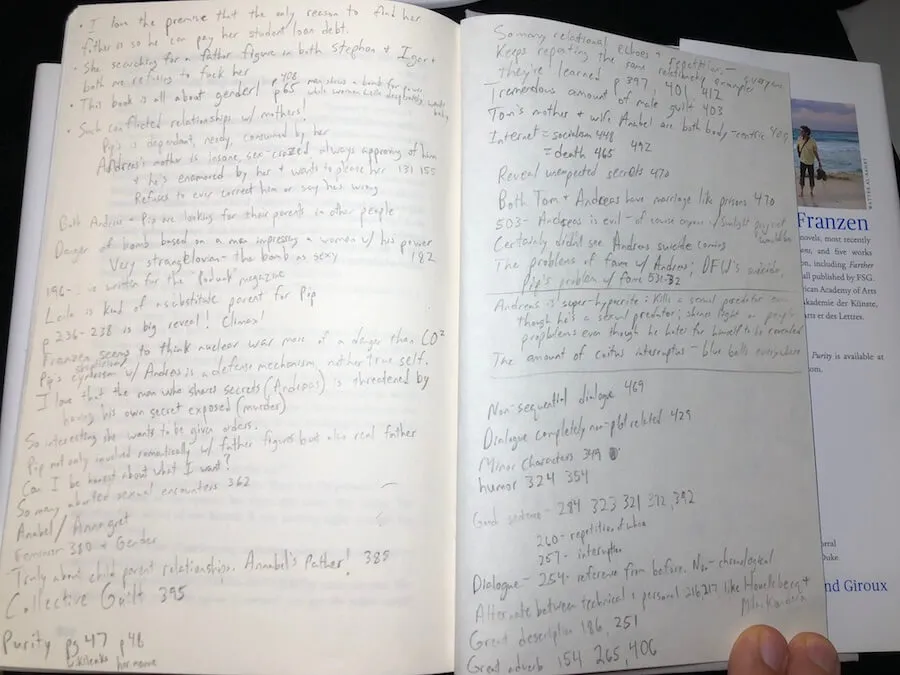 • I love the premise that the only reason to find her
father is so he can pay her student loan debt.
• She searching for a father figure in both Stephen + Igor +
both are refusing to fuck her
• This book is all about gender! p65 p408 - men shows a bomb for power
while women Leila desperately wants
baby
• Such conflicted relationships w/ mothers!
Pip is dependant, needy, consumed by her
Andreas's mother is insane, sex-crazed always approving of him
+ he's enamored by her + wants to please her 131 155
Refuses to ever correct him or say he's wrong
Both Andreas + Pip are looking for their parents in other people
Danger of bomb based on a man impressing a woman w/ his power
Very strangelovian - the bomb as sexy 182
196- is written for the magazine
Leila is kind of a substitute parent for Pip
p 236-238 is big reveal! Climax!
Franzen seems to think nuclear war more of a danger than CO2
Pip's w/ Andreas is a defense mechanism, not her true self.
I love that the man who shares secrets (Andreas) is threatened by
having his own secret exposed (murder)
So interesting she wants to be given orders.
Pip not only involved romantically w/ father figures but also real father
Can I be honest about what I want?
So many aborted sexual encounters 362
Anabel / Annagret
Feminism 380 + Gender
Truly about child parent relationships. Annabel's Father! 385
Collective Guilt 395
Purity pg 47 p48
her name
So many relational echoes + repetition -
Keeps repeating the same relationship examples
they've learned p 397, 401, 412
Tremendous amount of male guilt 403
Tom's mother + wife Anabel are both body-centric 405
Internet = socialism 448
= death 465 492
Reveal unexpected secrets 470
Both Tom + Andreas have marriage like prisons 470
503- Andreas is evil - of course anyone w/ Sunlight project
would be
Certainly didn't see Andreas suicide coming
The problems of fame w/ Andreas; DFW's suicide,
Pip's problem w/ fame 531-32
Andreas is super-hypocrite: Kills a sexual predator even
though he's a sexual predator; shines light on people
propblems even though he hates for himself to be revealed
The amount of coitus interruptus - blue balls everywhere
Non-sequential dialoge 469
Dialogue completely non-plot related 429
Minor characters 349
humor 324 354
Good sentence - 284 323 321 372, 392
260- repetition of
257- interruption
Dialogue - 254- reference from before. Non-chronological
Alternate between technical + personal 216, 217 like Houellebecq +
Milan Kundera
Great description 186, 251
Great adverb 154 265, 406
WATTER ALAMERY
Franzen
novels, most recently
and five works
on, including Farther
all published by FSG.
rican Academy of Arts
Akademie der Künste,
Arts et des Lettres.
Purity is available at
om.
orral
Duke
nd Giroux